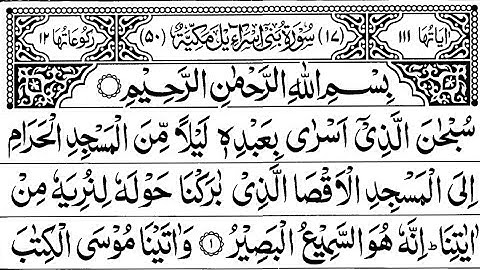 اٰيَاتُهَا ١١١ (١٧) سُوْرَةُ بَنِيْٓ اِسْرَآءِيْلَ مَكِّيَّةٌ (٥٠) رُكُوْعَاتُهَا ١٢
بِسْمِ اللهِ الرَّحْمٰنِ الرَّحِيْمِ
سُبْحٰنَ الَّذِيْٓ اَسْرٰى بِعَبْدِهٖ لَيْلًا مِّنَ الْمَسْجِدِ الْحَرَامِ
اِلَى الْمَسْجِدِ الْاَقْصَا الَّذِيْ بٰرَكْنَا حَوْلَهٗ لِنُرِيَهٗ مِنْ
اٰيٰتِنَا ؕ اِنَّهٗ هُوَ السَّمِيْعُ الْبَصِيْرُ ١ وَاٰتَيْنَا مُوْسَى الْكِتٰبَ